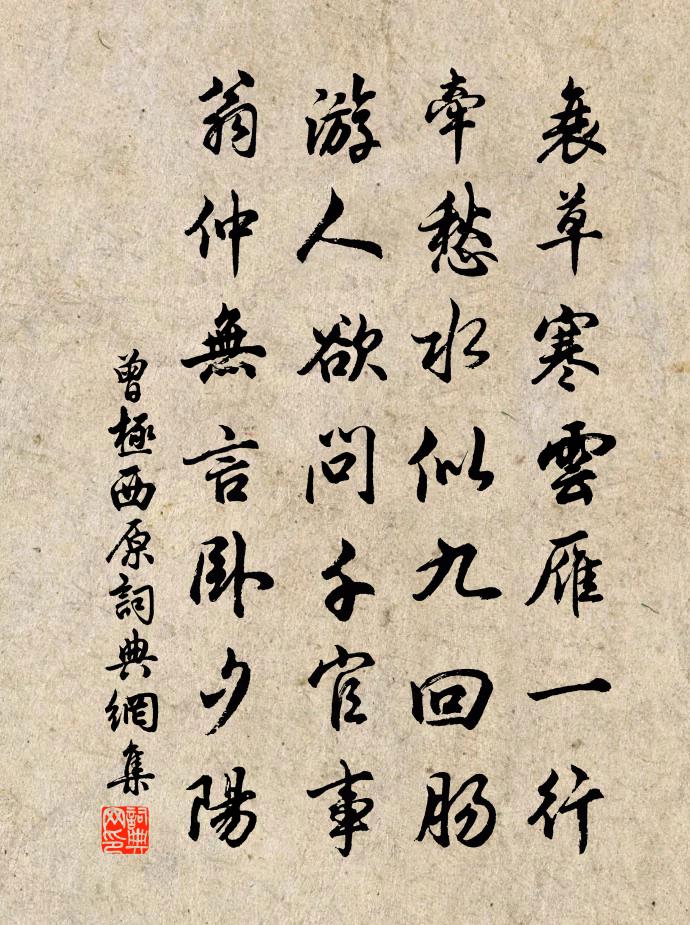 衰草寒雲雁一行
牽愁水似九回腸
游人欲問千官事
翁仲無言臥夕陽
曾極西原詞典網集
詞典網印